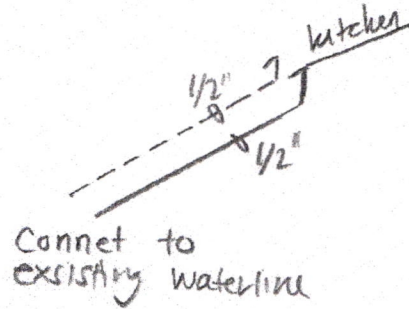 kitchen
1/2"
1/2"
Connet to
exsisting waterline